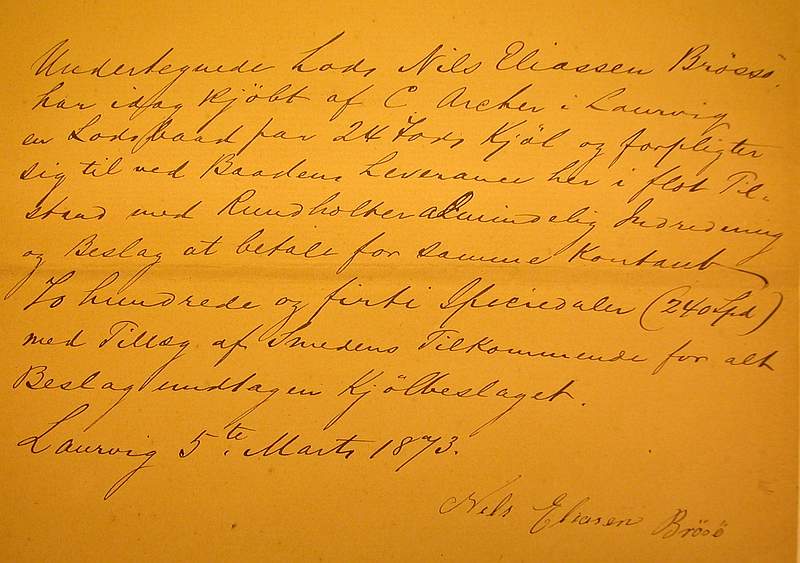 Undertegnede Lods Nils Eliassen Brössö,
har idag Kjöbt af C. Archer i Laurvig
en Lodsbaad paa 24 Fods Kjöl og forpligter
sig til ved Baadens Leverance her i flot Til-
stand med Rundholter almindelig Indredning
og Beslag at betale for samme Kontant
To hundrede og firti Speciedaler (240 Spd)
med Tillæg af Smedens Tilkommende for alt
Beslag undtagen Kjölbeslaget.
Laurvig 5te Marts 1873.
Nels Eliasen Brösö